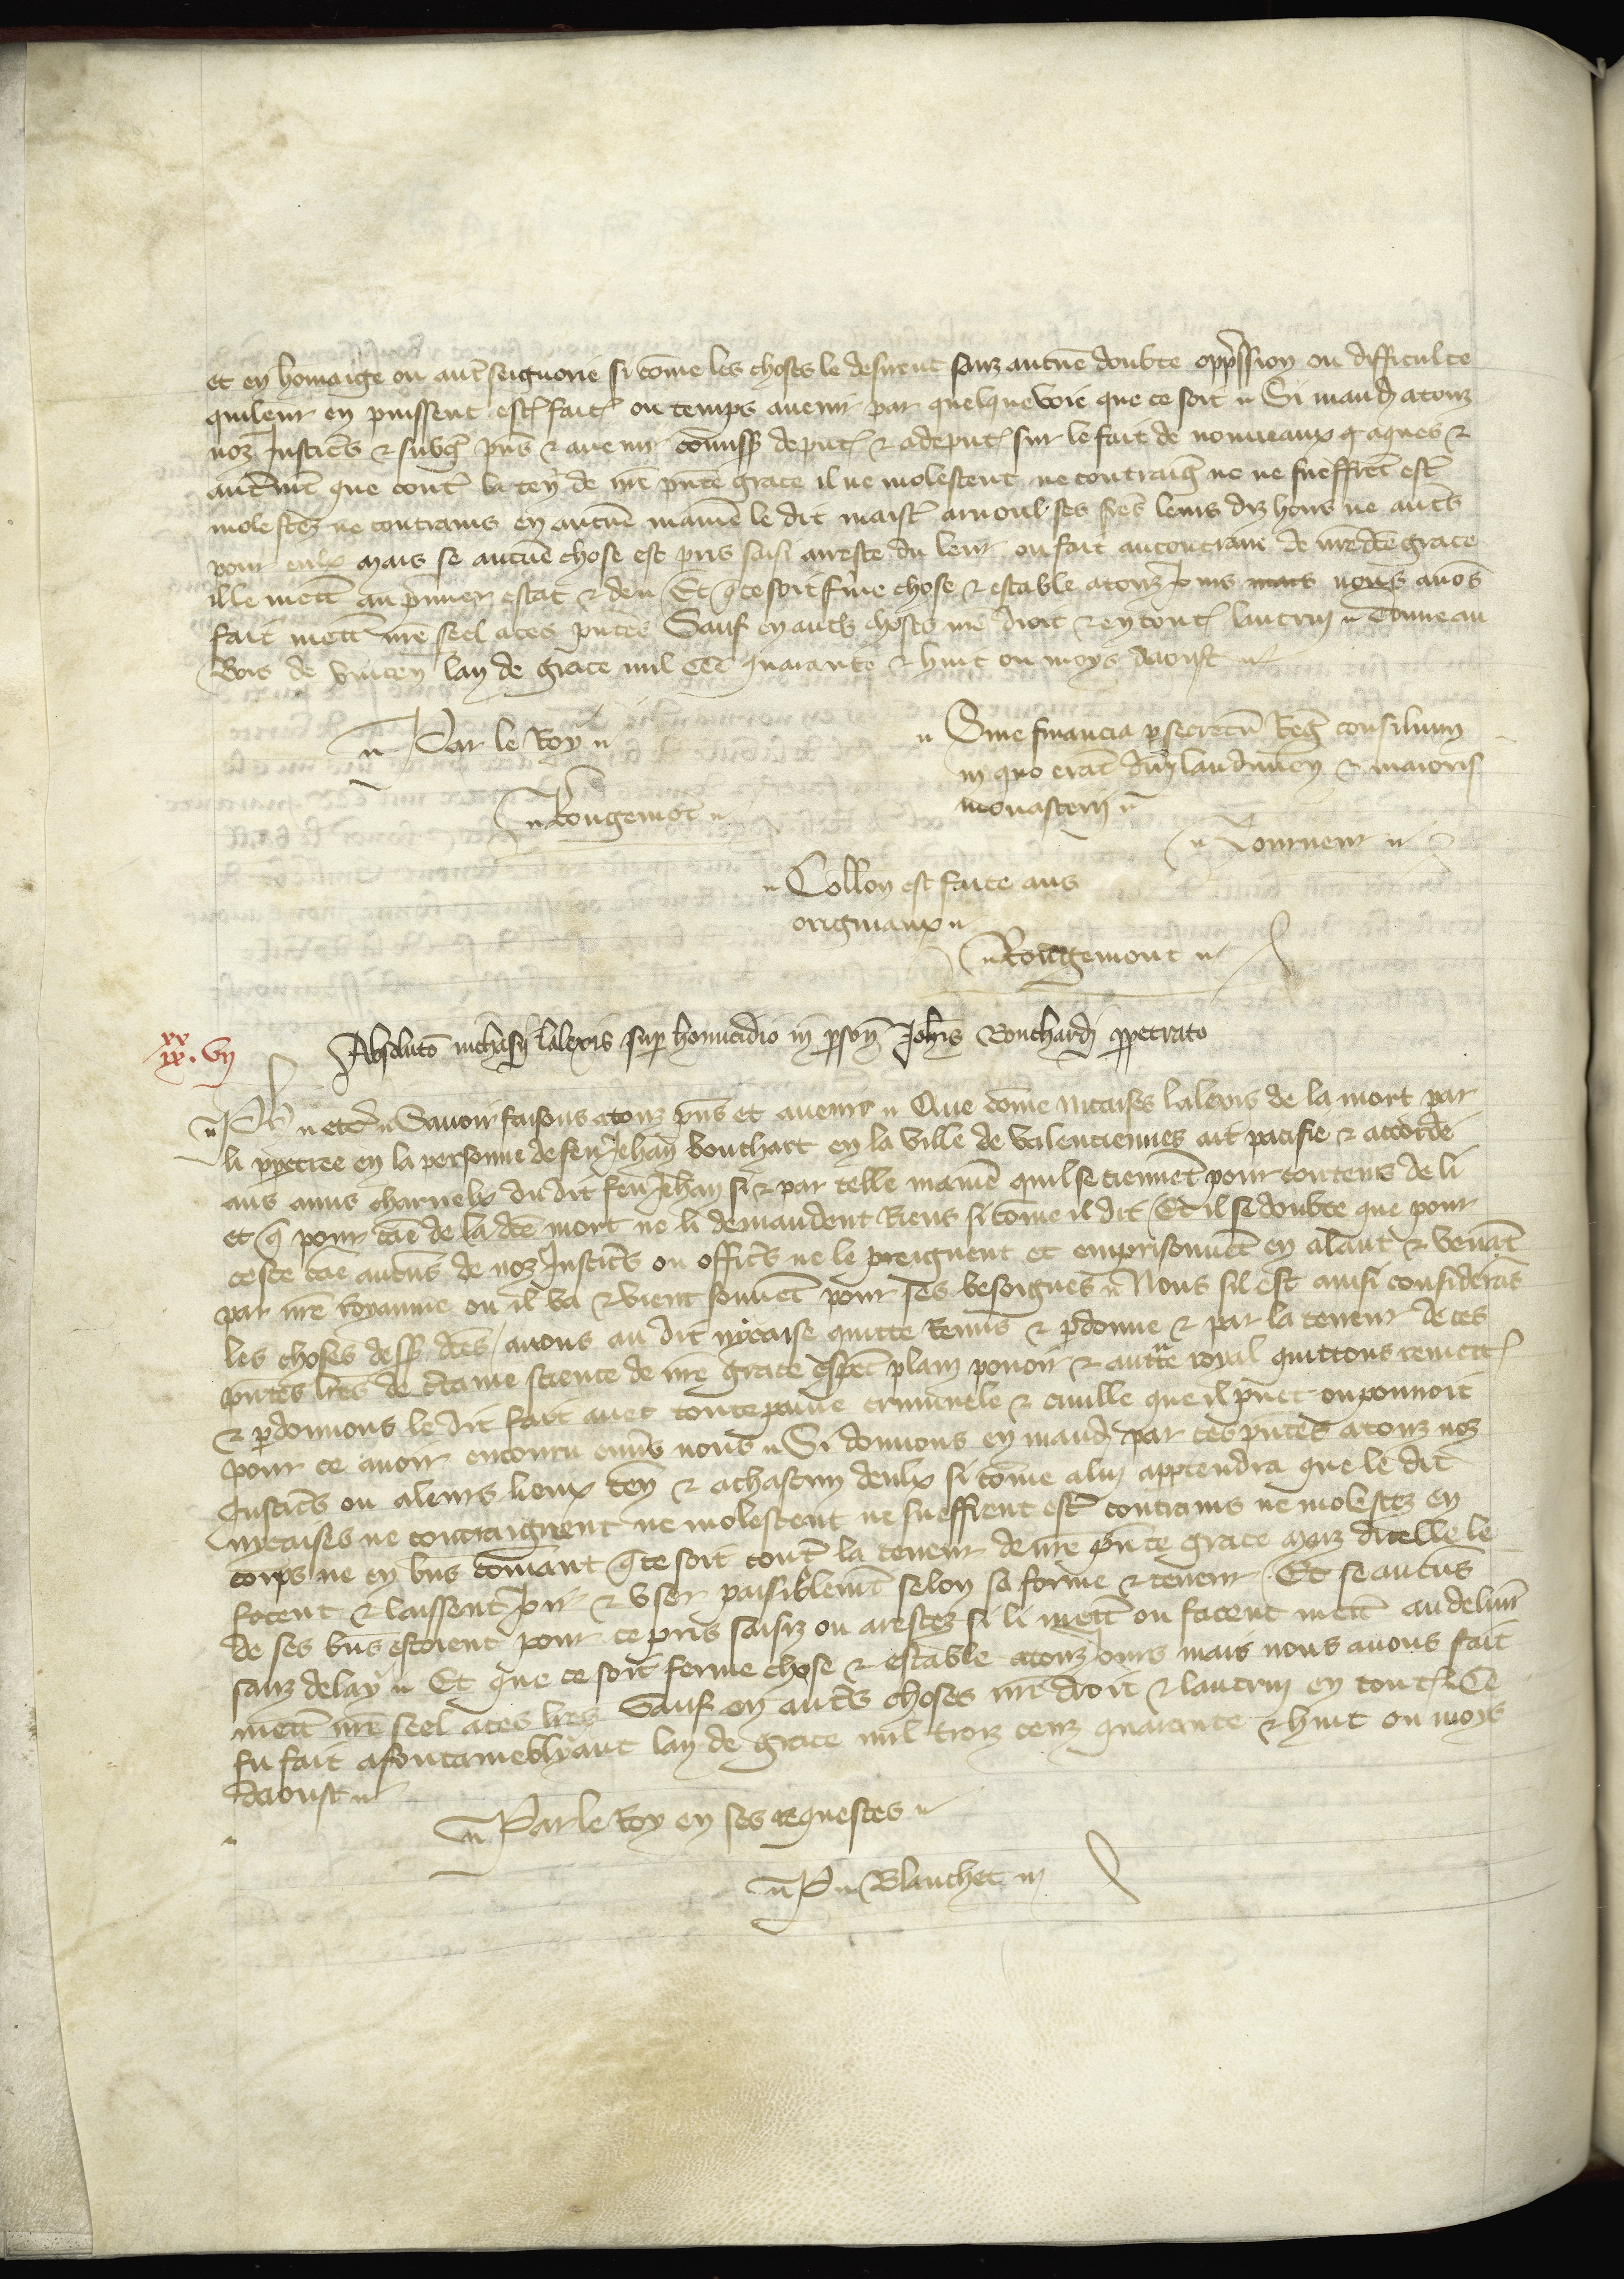 et en homaige ou autr̄ seignorie si cōme les choses le desirent sanz aucuñe doubte opp̄ssion ou difficulte
quileur en puissent estr̄ fait̄ ou temps auenir par quelquevoie que ce soit Si mand̄ atouz
noz Justicr̄s & subḡ pn̄s & auenir cōmiss̄ deput̄ & adeput̄ sur le fait de nouueaux q̄ aques &
autrem̄t que contr̄ la ten̄ de nr̄e pn̄te grace il ne molestent ne contraign̄ ne ne sueffrēt estr̄
molestez ne contrains en aucūe manier̄e le dit maistr̄ arnoul ses fr̄es leurs diz hoirs ne autr̄s
pour eulx mais se aucūe chose est pris saisi arreste du leur ou fait aucontraire de nr̄e dc̄e grace
ille mett̄ au p̄mier estat & deu Et q̄ ce soit fr̄me chose & estable atouz J̄ ours mais nous auōs
fait mettr̄ nr̄e seel aces pn̄tes Sauf en autr̄s choses nr̄e droit & en tout̄ lautruy Donne au
Bois de vincen̄ lan de grace mil CCC quarante & huit ou moys daoust
Par le Roy
Rougemōt
Sine financia p̄ secretū Reḡ consilium
in quo erāt dn̄i laudunen̄ & maioris
monasterij
Tourneur
Coll̄on est faite aus
originaux
Rougemont
xx
xx. vij
Absolutō nichasij lalexis sup̄ homicidio in p̄son̄ Joh̄is Bouchardj p̄petrato
Ph̄ etc̄ Sauoir faisons atouz pn̄s et auenir Que cōme nicaises lalexis de la mort par
li p̄petree en la personne de feu Jehan̄ bouchart en la ville de valenciennes ait pacifie & accorde
aus amis charnelx dudit feu Jehan̄ si & par telle manier̄e quil se tiennēt pour contens de li
et q̄ pour cāe de la dc̄e mort ne li demandent Riens si cōme il dit Et il se doubte que pour
ceste cāe aucūs de noz Justicr̄s ou officr̄s ne le preignent et emprisonnēt en alant & venāt
par nr̄e royaume ou il va & vient souuēt pour ses besoignes Nous sil est ainsi considerās
les choses dess̄ dc̄es auons au dit nycaise quitte Remis & p̄donne & par la teneur de ces
pn̄tes lr̄es de c̄taine science de nr̄e grace esp̄ecl plain pouoir & autt̄e royal quittons remett̄
& p̄donnons le dit fait auec toute paine criminele & ciuille que il p̄uet ou pouuoit
pour ce auoir encouru enuers nous Si donnons en mand̄ par ces pn̄tes atouz noz
Justicr̄s ou aleurs lieux ten̄ & achascun deulx si cōme aluj appartendra que le dit
nycaises ne contraignent ne molestent ne sueffrent estr̄ contrains ne molestez en
corps ne en bn̄s cōmant q̄ ce soit contr̄ la teneur de nr̄e pn̄te grace maiz dicelle le
facent & laissent Jōir & vser paisiblemēt selon sa forme & teneur Et se aucūs
de ses bn̄s estoient pour ce pris saisiz ou arestez si li mettr̄ ou facent mettr̄ au deliur̄e
sanz delay Et que ce soit ferme chose & estable atouz jours mais nous auons fait
mettr̄ nr̄e seel aces lr̄es Sauf en autr̄s choses nr̄e droit & lautruj en tout̄ Ce
fu fait afontainebliaut lan de grace mil troiz cenz quarante & huit ou moys
daoust
Par le Roy en ses requestes
P Blanchet